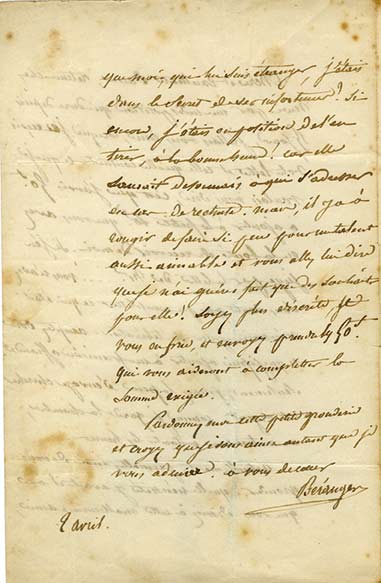 que moi, qui lui suis étranger j'étais
dans le secret de ses infortunes! Si
encore, j'étais en position de l'en
tirer, à la bonne heure! car elle
saurait desormais à qui s'adresser
en cas de rechute. mais, il y a à
rougir de faire si peu pour un talent
aussi aimable et vous allez lui dire
que je n'ai guères fait que des souhaits
pour elle! Soyez plus discrète, je
vous en prie, et envoyez prendre les 50f.
qui vous aideront à completter la
somme exigée.
Pardonnez moi cette petite gronderie
et croyez que je vous aime autant que je
vous admire. à vous de coeur
Béranger
2 avril.